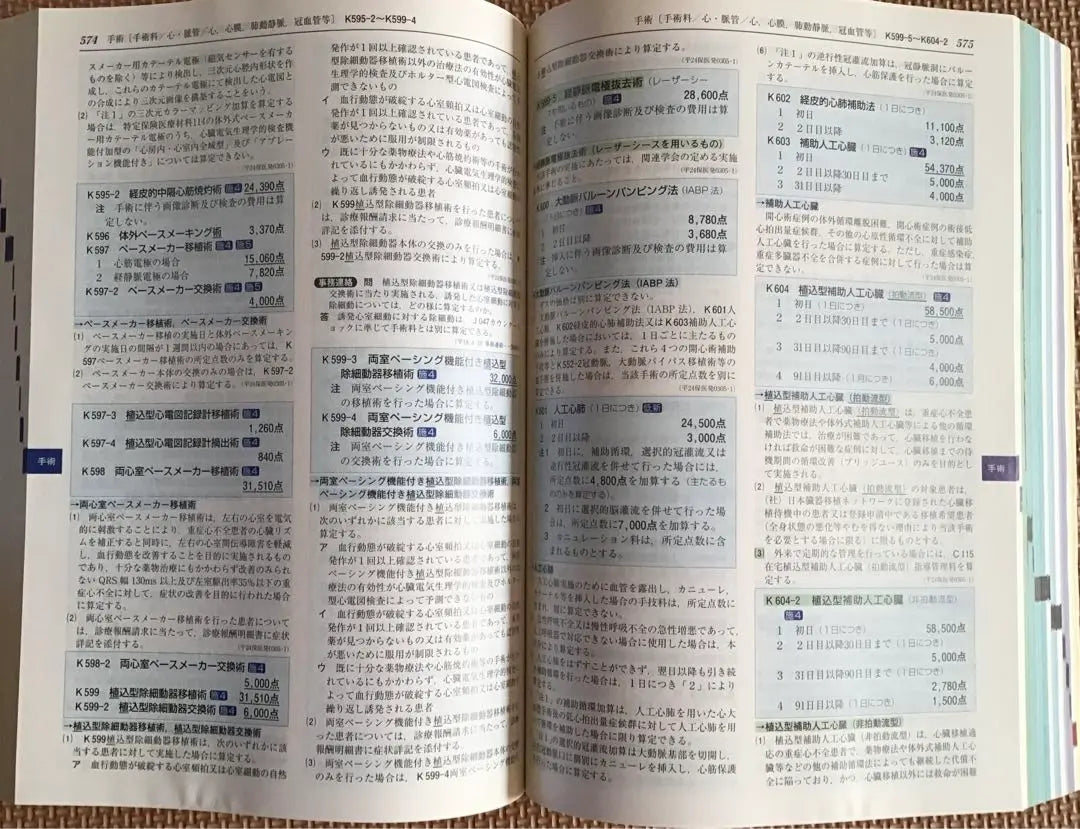 574 手術〔手術料／心・脈管／心，心膜，肺動静脈，冠血管等〕 K595-2～K599-4
スメーカー用カテーテル電極（磁気センサーを有する
ものを除く）等により検出し，三次元心腔内形状を作
成し，これらのカテーテル電極にて検出した心電図と
の合成により三次元画像を構築することをいう。
(2) 「注1」の三次元カラーマッピング加算を算定する
場合は，特定保険医療材料114の体外式ペースメーカ
ー用カテーテル電極のうち，心臓電気生理学的検査機
能付加型の「心房内・心室内全域型」及び「アブレー
ション機能付き」については算定できない。
(平24保医発0305・1)
K595-2 経皮的中隔心筋焼灼術 施4 24,390点
注 手術に伴う画像診断及び検査の費用は算
定しない。
K596 体外ペースメーキング術 3,370点
K597 ペースメーカー移植術 施4 施5
1 心筋電極の場合 15,060点
2 経静脈電極の場合 7,820点
K597-2 ペースメーカー交換術 施4 施5
4,000点
→ペースメーカー移植術，ペースメーカー交換術
(1) ペースメーカー移植の実施日と体外ペースメーキン
グの実施日の間隔が1週間以内の場合にあっては，K
597ペースメーカー移植術の所定点数のみを算定する。
(2) ペースメーカー本体の交換のみの場合は，K597-2
ペースメーカー交換術により算定する。(平24保医発0305・1)
K597-3 植込型心電図記録計移植術 施4
1,260点
K597-4 植込型心電図記録計摘出術 施4
840点
K598 両心室ペースメーカー移植術 施4
31,510点
→両心室ペースメーカー移植術
(1) 両心室ペースメーカー移植術は，左右の心室を電気
的に刺激することにより，重症心不全患者の心臓リズ
ムを補正すると同時に，左右の心室間伝導障害を軽減
し，血行動態を改善することを目的に実施されるもの
であり，十分な薬物治療にもかかわらず改善のみられ
ないQRS幅130ms以上及び左室駆出率35％以下の重
症心不全に対して，症状の改善を目的に行われた場合
に算定する。
(2) 両心室ペースメーカー移植術を行った患者について
は，診療報酬請求に当たって，診療報酬明細書に症状
詳記を添付する。
(平24保医発0305・1)
K598-2 両心室ペースメーカー交換術 施4
5,000点
K599 植込型除細動器移植術 施4 31,510点
K599-2 植込型除細動器交換術 施4 6,000点
→植込型除細動器移植術，植込型除細動器交換術
(1) K599植込型除細動器移植術は，次のいずれかに該
当する患者に対して実施した場合に算定する。
ア 血行動態が破綻する心室頻拍又は心室細動の自然
発作が1回以上確認されている患者であって，植込
型除細動器移植術以外の治療の有効性が心臓電気
生理学的検査及びホルター型心電図検査によって予
測できないもの
イ 血行動態が破綻する心室頻拍又は心室細動の自然
発作が1回以上確認されている患者であって，有効
薬が見つからないもの又は有効薬があっても
が悪いために服用が制限されるもの
ウ 既に十分な薬物療法や心筋焼灼術等の手術が
れているにもかかわらず，心臓電気生理学的検査に
よって血行動態が破綻する心室頻拍又は心室細動が
繰り返し誘発される患者
(2) K599植込型除細動器移植術を行った患者につい
は，診療報酬請求に当たって，診療報酬明細書に症状
詳記を添付する。
(3) 植込型除細動器本体の交換のみを行った場合は，K
599-2植込型除細動器交換術により算定する。
事務連絡 問 植込型除細動器移植術又は植込型除細動器
交換術に当たり実施される，誘発した心室細動に対する
除細動については，どの様に算定するのか。
答 誘発心室細動に対する除細動は，J047カウンターシ
ョックに準じて手術料とは別に算定できる。
K599-3 両室ペーシング機能付き植込型
除細動器移植術 施4 32,000点
注 両室ペーシング機能付き植込型除細動器
の移植術を行った場合に算定する。
K599-4 両室ペーシング機能付き植込型
除細動器交換術 施4 6,000点
注 両室ペーシング機能付き植込型除細動器
の交換術を行った場合に算定する。
→両室ペーシング機能付き植込型除細動器移植術，両室
ペーシング機能付き植込型除細動器交換術
(1) 両室ペーシング機能付き植込型除細動器移植術は，
次のいずれかに該当する患者に対して実施した場合に算
定する。
ア 血行動態が破綻する心室頻拍又は心室細動の自然
発作が1回以上確認されている患者であって，両室
ペーシング機能付き植込型除細動器移植術以外の治
療法の有効性が心臓電気生理学的検査及びホルター
型心電図検査によって予測できないもの
イ 血行動態が破綻する心室頻拍又は心室細動の自然
発作が1回以上確認されている患者であって，有効
薬が見つからないもの又は有効薬があっても
が悪いために服用が制限されるもの
ウ 既に十分な薬物療法や心筋焼灼術等の手術が
れているにもかかわらず，心臓電気生理学的検査に
よって血行動態が破綻する心室頻拍又は心室細動が
繰り返し誘発される患者
(2) 両室ペーシング機能付き植込型除細動器移植術を行
った患者については，診療報酬請求に当たって，診療
報酬明細書に症状詳記を添付する。
(3) 両室ペーシング機能付き植込型除細動器本体の交換
のみを行った場合は，K599-4両室ペーシング機能付き
手術
手術〔手術料／心・脈管／心，心膜，肺動静脈，冠血管等〕 K599-5～K604-2 575
交換術により算定する。
(平24保医発0305・1)
K599-5 経静脈電極抜去術（レーザーシー
スを用いるもの） 施4 28,600点
注 手術に伴う画像診断及び検査の費用は算
定しない。
経静脈電極抜去術（レーザーシースを用いるもの）
当該手術の実施にあたっては，関連学会の定める実施
(平24保医発0305・1)
K600 大動脈バルーンパンピング法（IABP法）
（1日につき） 施4
1 初日 8,780点
2 2日目以降 3,680点
注 挿入に伴う画像診断及び検査の費用は算
定しない。
大動脈バルーンパンピング法（IABP法）
の価格は別に算定できない。
大動脈バルーンパンピング法（IABP法），K601人
工心肺，K602経皮的心肺補助法又はK603補助人工心
臓を併施した場合においては，1日ごとに主たるもの
のみにより算定する。また，これら4つの開心術補助
手段等とK552-2冠動脈，大動脈バイパス移植術等の
手術を併施した場合は，当該手術の所定点数を別に
算定できる。
(平24保医発0305・1)
K601 人工心肺（1日につき）
1 初日 24,500点
2 2日目以降 3,000点
注1 初日に，補助循環，選択的冠灌流又は
逆行性冠灌流を併せて行った場合には，
所定点数に4,800点を加算する（主たるも
ののみを算定する）。
2 初日に選択的脳灌流を併せて行った場
合は，所定点数に7,000点を加算する。
3 カニュレーション料は，所定点数に含
まれるものとする。
人工心肺
人工心肺実施のために血管を露出し，カニューレ，
カテーテル等を挿入した場合の手技料は，所定点数に
含まれ，別に算定できない。
急性呼吸不全又は慢性呼吸不全の急性増悪であって，
人工呼吸器で対応できない場合に使用した場合は，本
区分により算定する。
人工心肺をはずすことができず，翌日以降も引き続
き補助循環を行った場合は，1日につき「2」により
算定する。
「注1」の補助循環加算は，人工心肺を用いた心大
血管手術後の低心拍出量症候群に対して人工心肺を用
いて循環を補助した場合に限り算定できる。
「注1」の選択的冠灌流加算は大動脈基部を切開し，
左右冠動脈口に個別にカニューレを挿入し，心筋保護
を行った場合に算定する。
(6) 「注1」の逆行性冠灌流加算は，冠静脈洞にバルーン
カテーテルを挿入し，心筋保護を行った場合に算定す
る。
(平24保医発0305・1)
K602 経皮的心肺補助法（1日につき）
1 初日 11,100点
2 2日目以降 3,120点
K603 補助人工心臓（1日につき） 施4
1 初日 54,370点
2 2日目以降30日目まで 5,000点
3 31日目以降 4,000点
→補助人工心臓
開心術症例の体外循環離脱困難，開心術症例の術後低
心拍出量症候群，その他の心原性循環不全に対して補助
人工心臓を行った場合に算定する。ただし，重症感染症，
重症多臓器不全を合併する症例に対して行った場合は算
定できない。
(平24保医発0305・1)
K604 植込型補助人工心臓（拍動流型） 施4
1 初日（1日につき） 58,500点
2 2日目以降30日目まで（1日につき）
5,000点
3 31日目以降90日目まで（1日につき）
4,000点
4 91日目以降（1日につき） 6,000点
→植込型補助人工心臓（拍動流型）
(1) 植込型補助人工心臓（拍動流型）は，重症心不全患
者で薬物療法や体外式補助人工心臓等による他の循環
補助法では，治療が困難であって，心臓移植を行わな
ければ救命が困難な症例に対して，心臓移植までの待
機期間の循環改善（ブリッジユース）のみを目的とし
て実施される。
(2) 植込型補助人工心臓（拍動流型）の対象患者は，
（社）日本臓器移植ネットワークに登録された心臓移
植待機中の患者又は登録申請中である移植希望患者
（全身状態の悪化等やむを得ない理由により当該手術
を必要とする場合に限る）に限るものとする。
(3) 外来で定期的な管理を行っている場合には，C115
在宅植込型補助人工心臓（拍動流型）指導管理料を算
定する。
(平24保医発0305・1)
K604-2 植込型補助人工心臓（非拍動流型）
施4
1 初日（1日につき） 58,500点
2 2日目以降30日目まで（1日につき）
5,000点
3 31日目以降90日目まで（1日につき）
2,780点
4 91日目以降（1日につき） 1,500点
→植込型補助人工心臓（非拍動流型）
(1) 植込型補助人工心臓（非拍動流型）は，心臓移植適
応の重症心不全患者で，薬物療法や体外式補助人工心
臓等などの他の補助循環法によっても継続した代償不
全に陥っており，かつ，心臓移植以外には救命が困難
手術